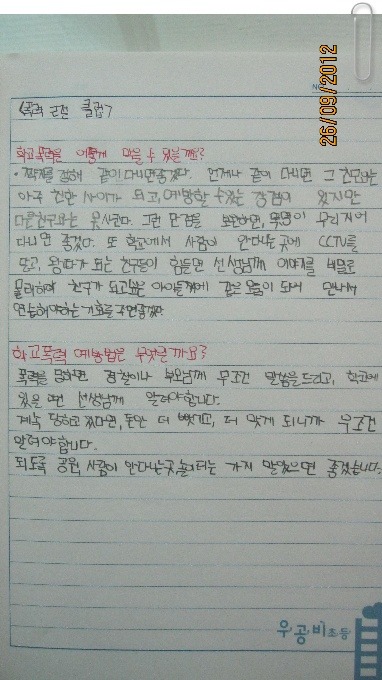 <폭력 근절 클럽>
26/09/2012
학교폭력을 어떻게 막을 수 있을까요?
• 짝지를 정해 같이 다니면 좋겠다. 언제나 같이 다니면 그 친구와는
아주 친한 사이가 되고, 예방할 수 있는 장점이 있지만
다른친구와는 못사귄다. 그런 단점을 보완하면, 뚝명이 무리지어
다니면 좋겠다. 또 학교에서 사람이 안다니는 곳에 CCTV를
달고, 왕따가 되는 친구들이 힘들면 선생님께 이야기를 비밀로
하며 친구가 되고싶은 아이들끼리 같은 모둠이 되어 만나서
연습해야하는 기회를 주면좋겠다.
학교폭력 예방법은 무엇일까요?
폭력을 당하면 경찰이나 부모님께 무조건 말씀을 드리고, 학교에
있을 땐 선생님께 알려야합니다.
계속 당하고 있다면, 돈만 더 뺏기고, 더 맞게 되니까 무조건
알려야 합니다.
되도록 공원, 사람이 안다니는곳, 놀이터는 가지 말았으면 좋겠습니다.
우공비초등